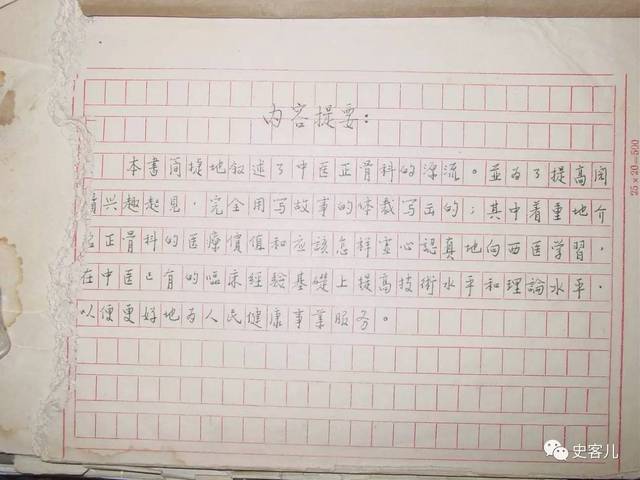 内容提要：
本書简捷地叙述了中医正骨科的源流。並为了提高阅
兴趣起見，完全用写故事的体裁写出的；其中着重地介
正骨科的医療價值和应該怎样虚心認真地向西医学習，
在中医已有的臨床經驗基礎上提高技術水平和理論水平，
以便更好地为人民健康事業服务。
25×20=500
史客儿